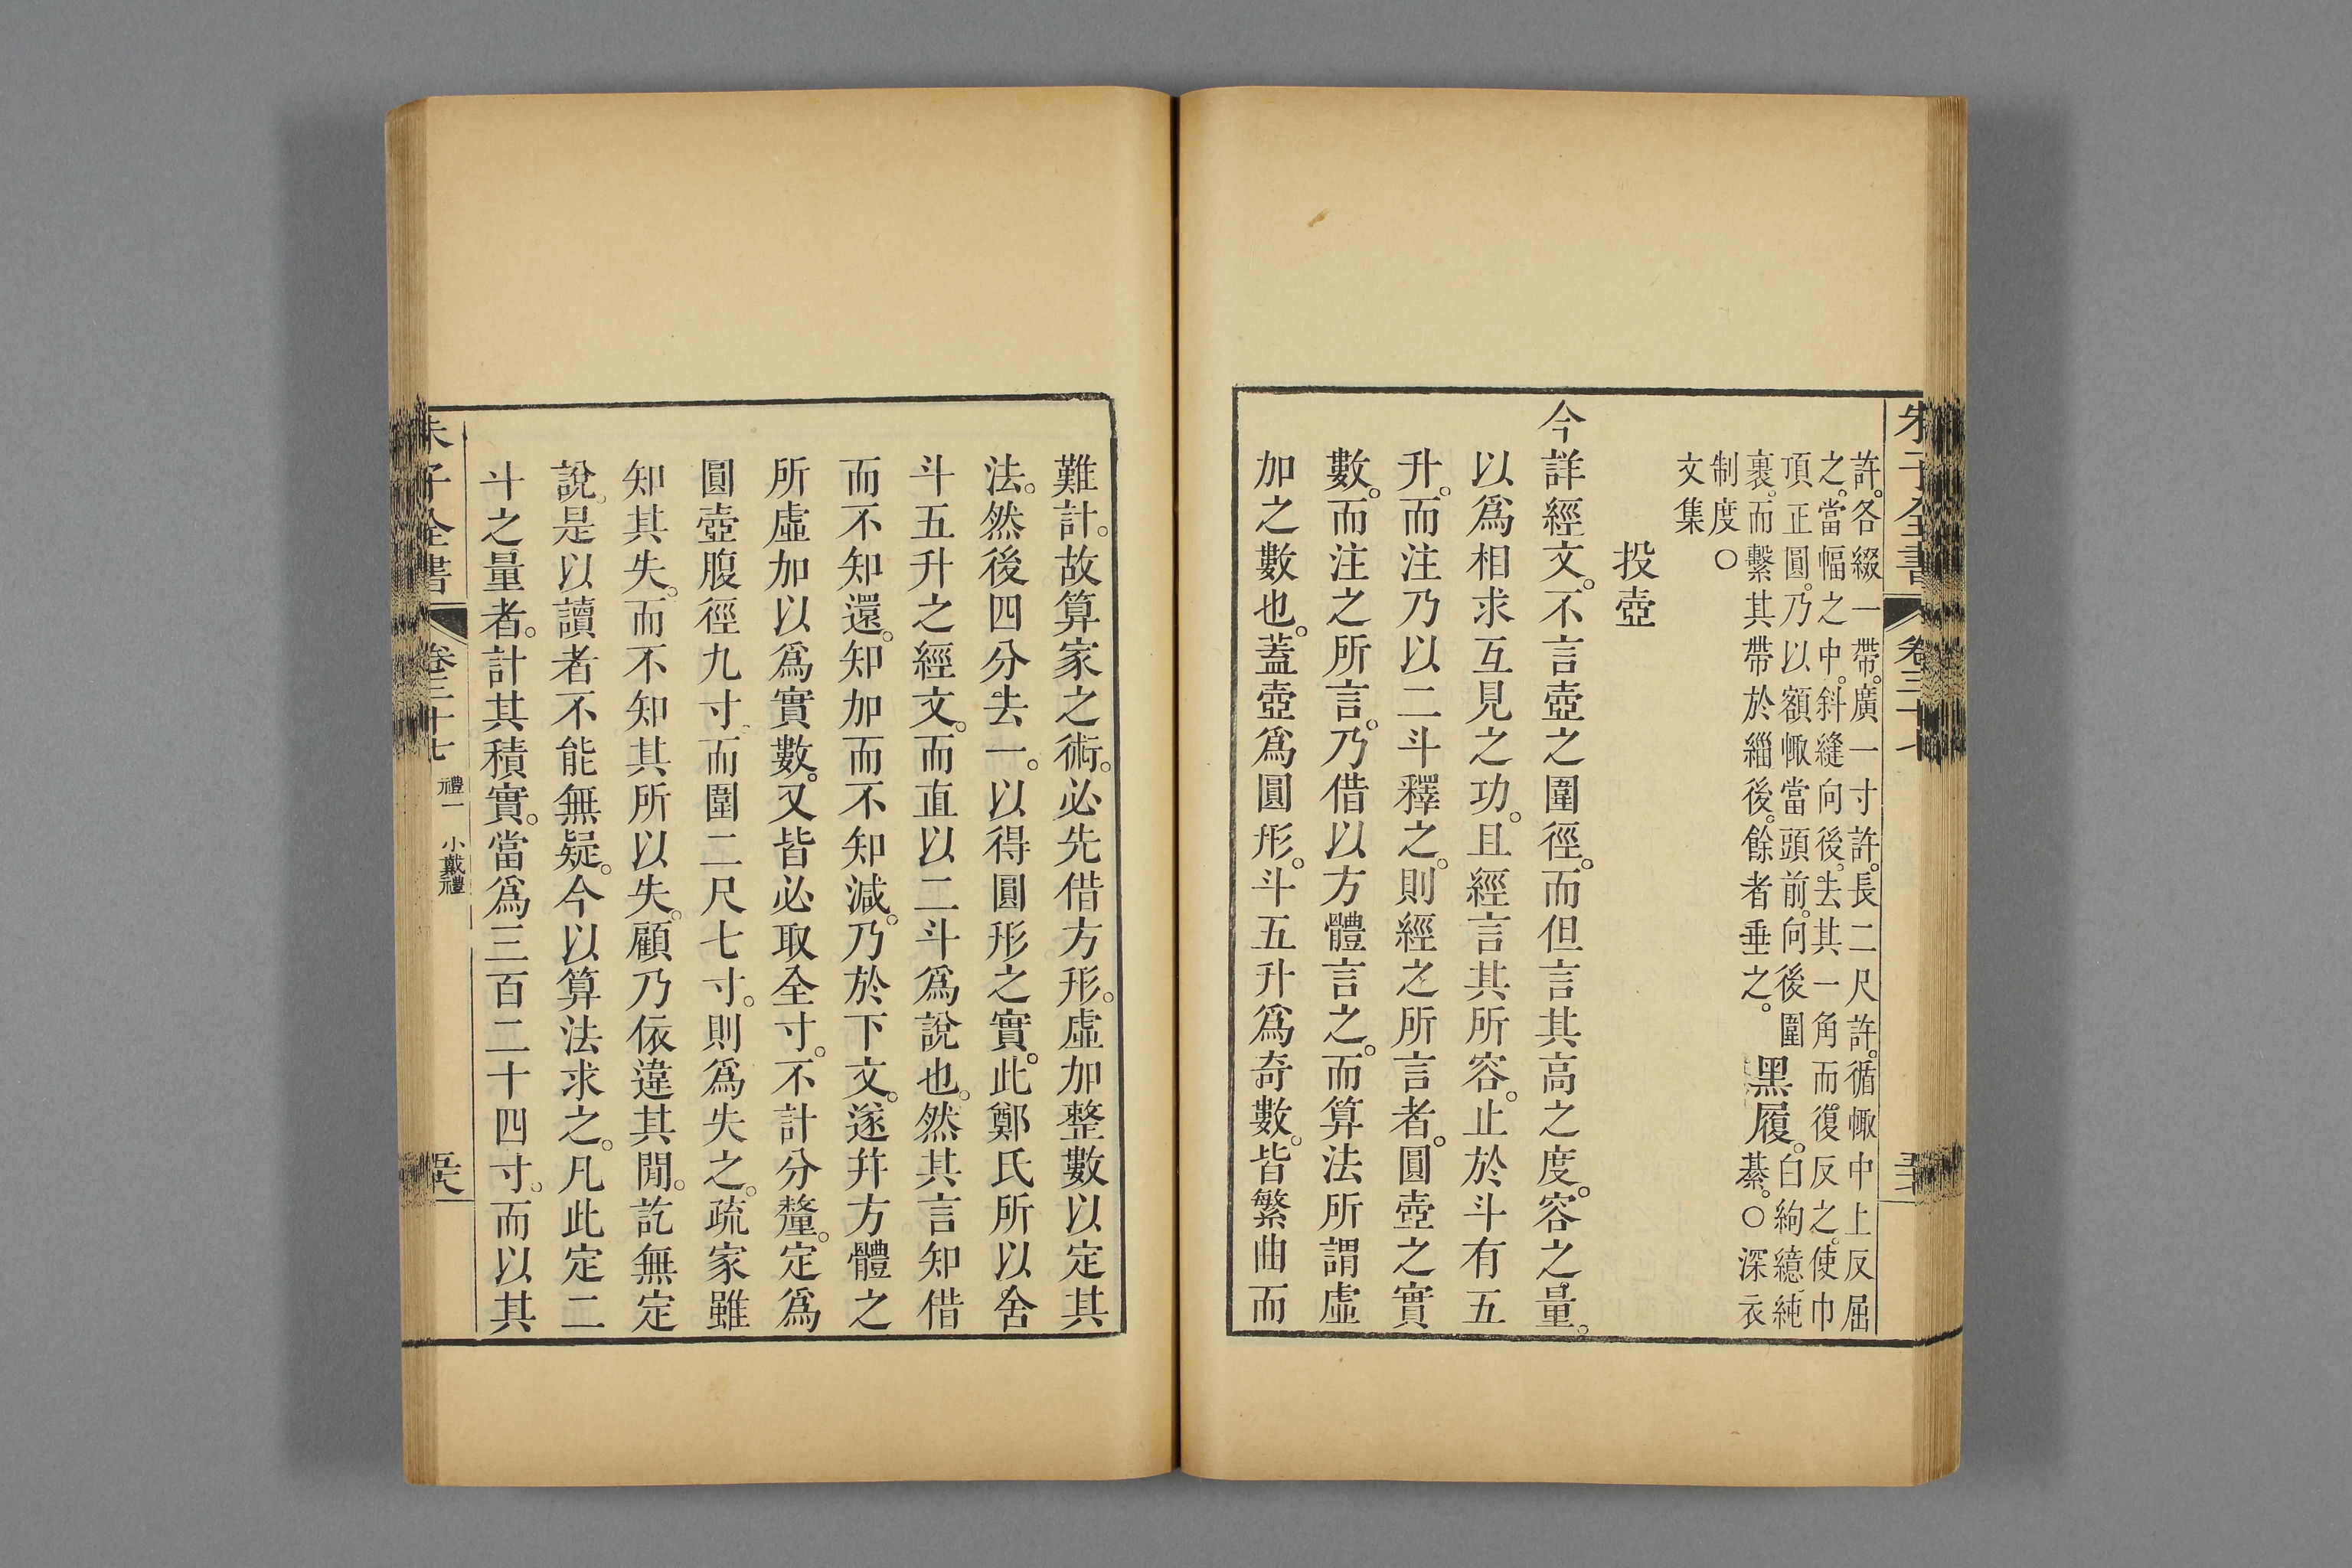 朱子全書 卷三十七
許。各綴一帶。廣一寸許。長二尺許。循㡇中上反屈
之。當幅之中。斜縫向後。去其一角而復反之。使巾
頂正圓。乃以額㡇當頭前。向後圍
裹。而繫其帶於緇後。餘者垂之。
黑履。
白絇繶純
綦。○深衣
制度○
文集
投壺
今詳經文。不言壺之圍徑。而但言其高之度。容之量。
以爲相求互見之功。且經言其所容。止於斗有五
升。而注乃以二斗釋之。則經之所言者。圓壺之實
數。而注之所言。乃借以方體言之。而算法所謂虛
加之數也。蓋壺爲圓形。斗五升爲奇數。皆繁曲而
難計。故算家之術。必先借方形。虛加整數以定其
法。然後四分去一。以得圓形之實。此鄭氏所以舍
斗五升之經文。而直以二斗爲說也。然其言知借
而不知還。知加而不知減。乃於下文。遂幷方體之
所虛加以爲實數。又皆必取全寸。不計分釐。定爲
圓壺腹徑九寸。而圍二尺七寸。則爲失之。疏家雖
知其失。而不知其所以失。顧乃依違其閒。訖無定
說。是以讀者不能無疑。今以算法求之。凡此定二
斗之量者。計其積實。當爲三百二十四寸。而以其
朱子全書 卷三十七 禮一 小戴禮